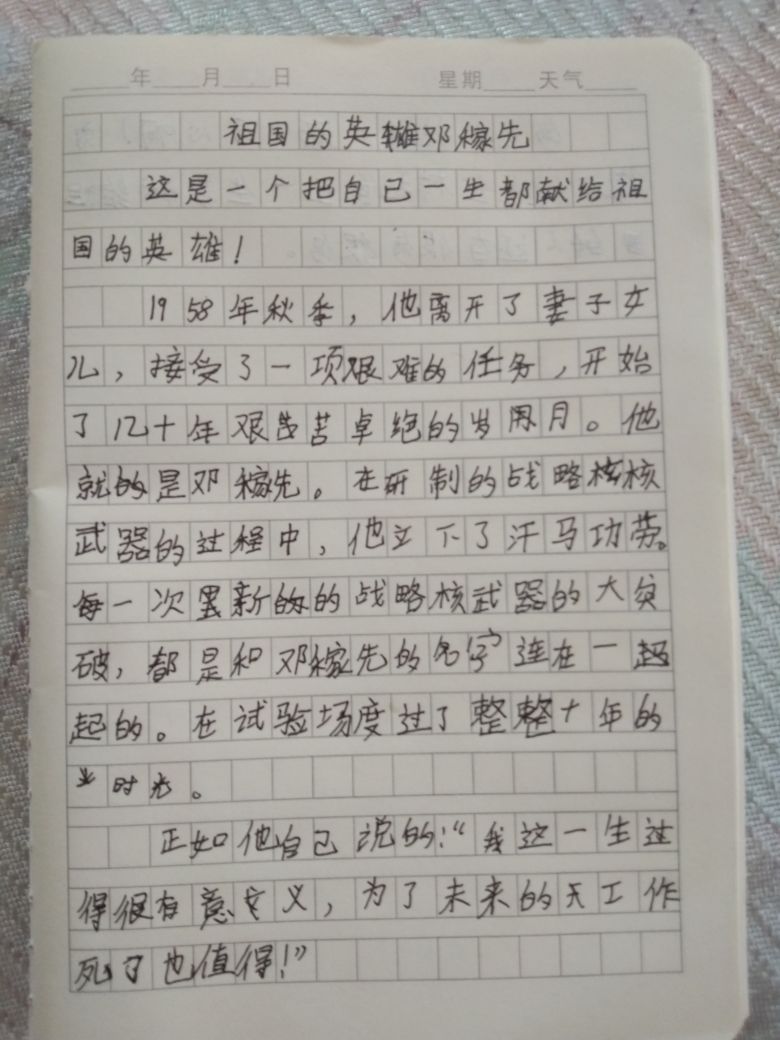 年 月 日 星期 天气
祖国的英雄邓稼先
这是一个把自己一生都献给祖
国的英雄！
1958年秋季，他离开了妻子女
儿，接受了一项艰难的任务，开始
了几十年艰苦卓绝的岁月。他
就是邓稼先。在研制的战略核
武器的过程中，他立下了汗马功劳。
每一次新的战略核武器的大突
破，都是和邓稼先的名字连在一起
起的。在试验场度过了整整十年的
时光。
正如他自己说的：“我这一生过
得很有意义，为了未来的天工作
死了也值得！”